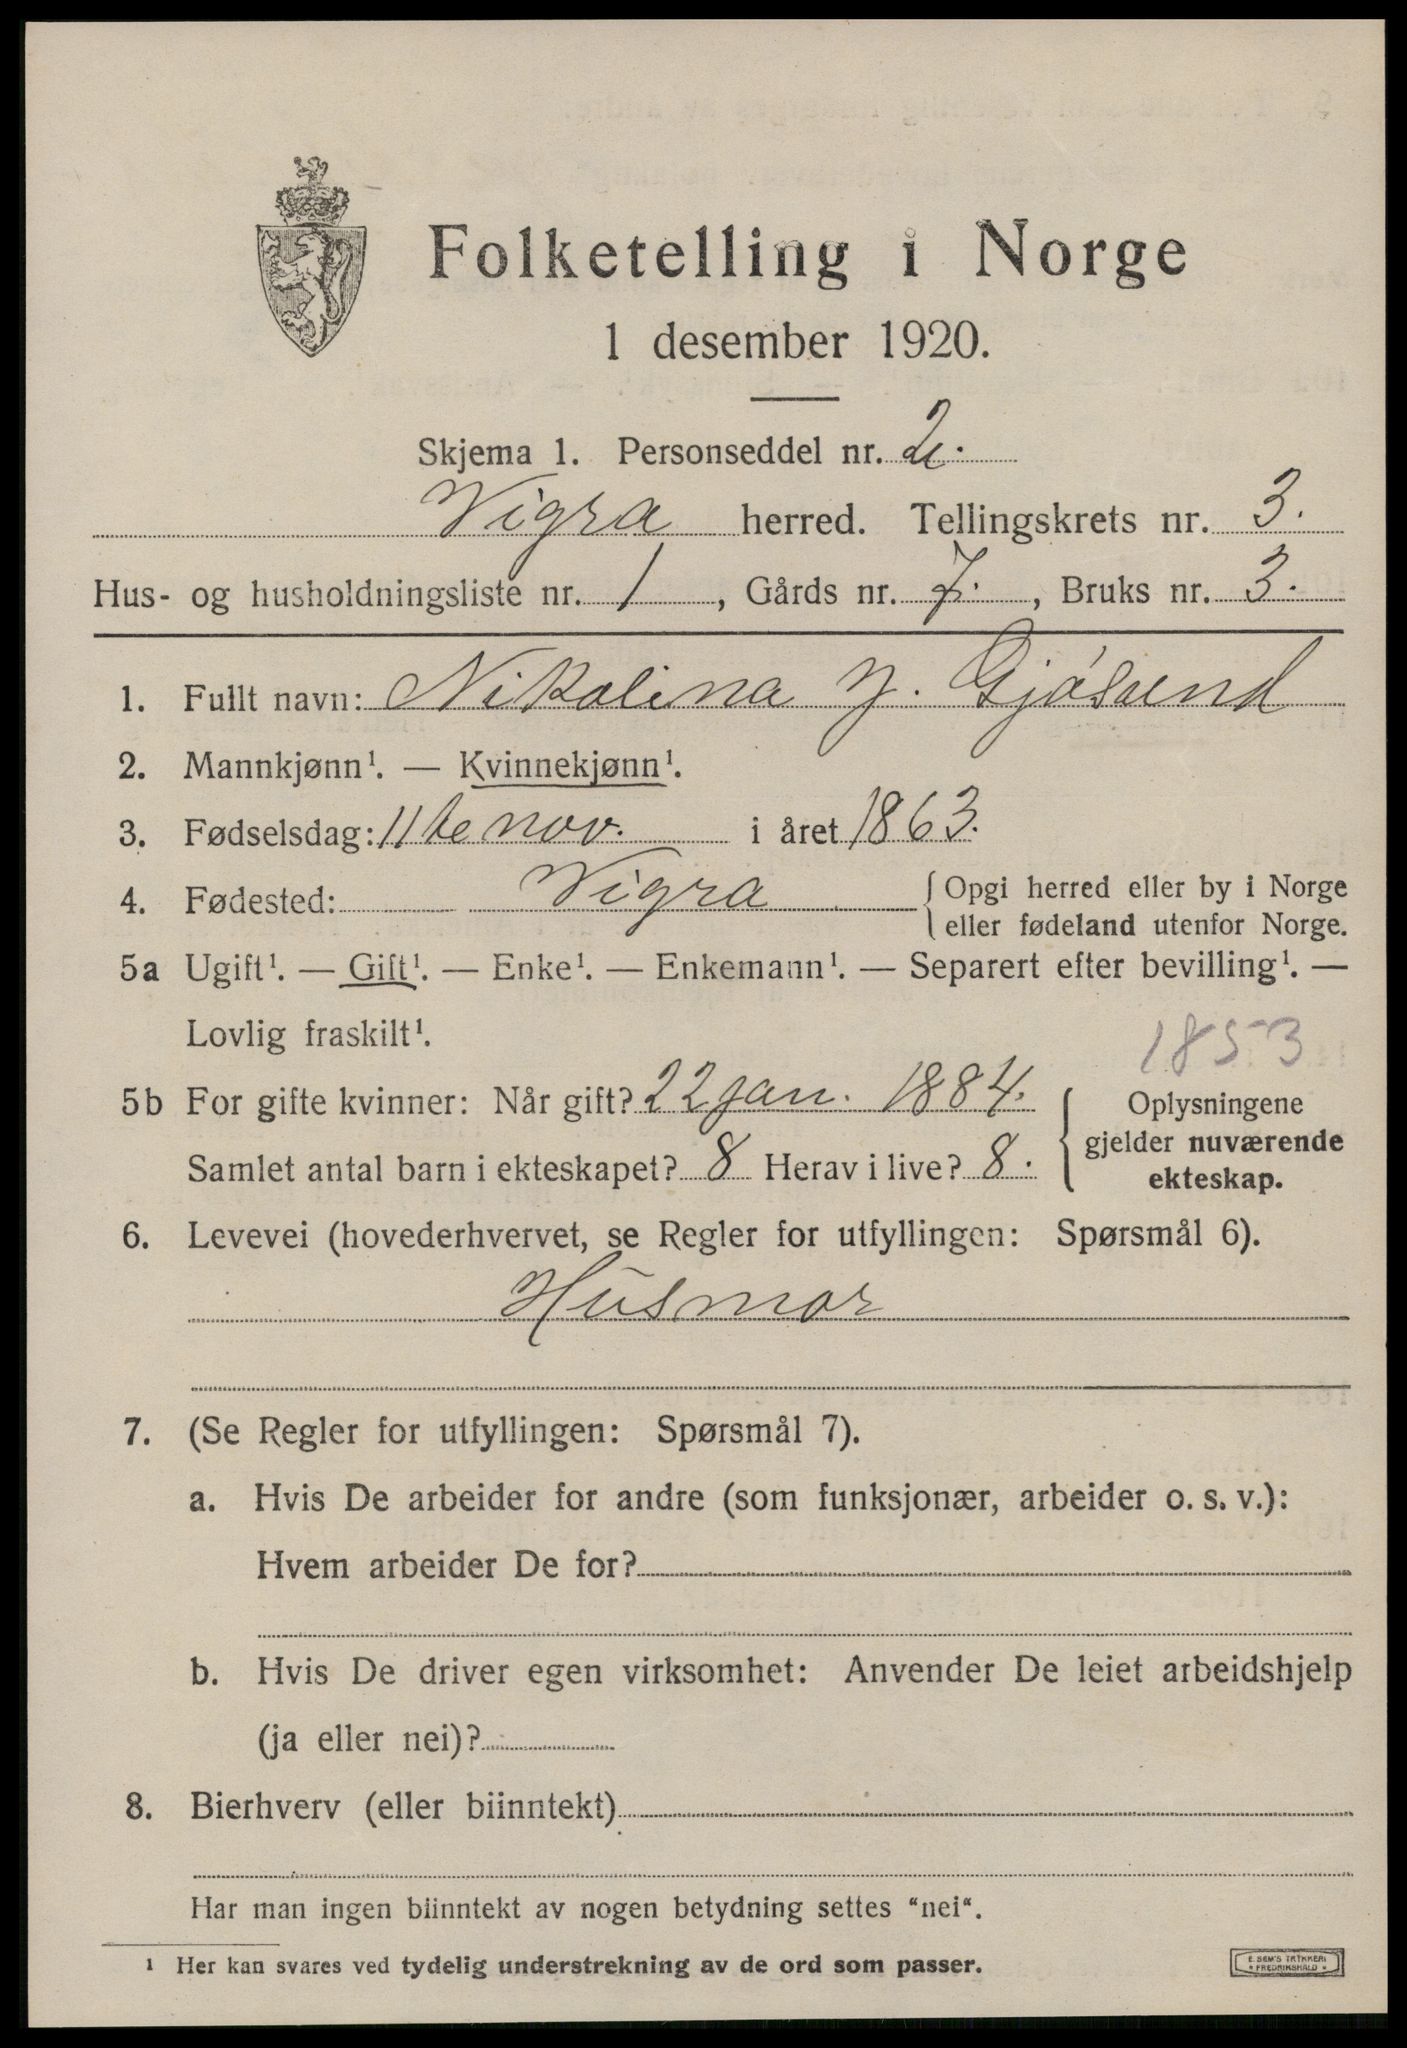 Folketelling i Norge
1 desember 1920.
Skjema 1. Personseddel nr. 2.
Vigra herred. Tellingskrets nr. 3.
Hus- og husholdningsliste nr. 1, Gårds nr. 7., Bruks nr. 3.
1. Fullt navn: Nikolina J. Gjøsund
2. Mannkjønn¹. — Kvinnekjønn¹.
3. Fødselsdag: 11te nov. i året 1863.
4. Fødested: Vigra { Opgi herred eller by i Norge
eller fødeland utenfor Norge.
5a Ugift¹. — Gift¹. — Enke¹. — Enkemann¹. — Separert efter bevilling¹. —
Lovlig fraskilt¹.
1853
5b For gifte kvinner: Når gift? 22 jan. 1884. { Oplysningene
gjelder nuværende
Samlet antal barn i ekteskapet? 8 Herav i live? 8.
ekteskap.
6. Levevei (hovederhvervet, se Regler for utfyllingen: Spørsmål 6).
Husmor
7. (Se Regler for utfyllingen: Spørsmål 7).
a. Hvis De arbeider for andre (som funksjonær, arbeider o. s. v.):
Hvem arbeider De for?
b. Hvis De driver egen virksomhet: Anvender De leiet arbeidshjelp
(ja eller nei)?
8. Bierhverv (eller biinntekt)
Har man ingen biinntekt av nogen betydning settes "nei".
¹ Her kan svares ved tydelig understrekning av de ord som passer.
E. SEM'S TRYKKERI
FREDRIKSHALD